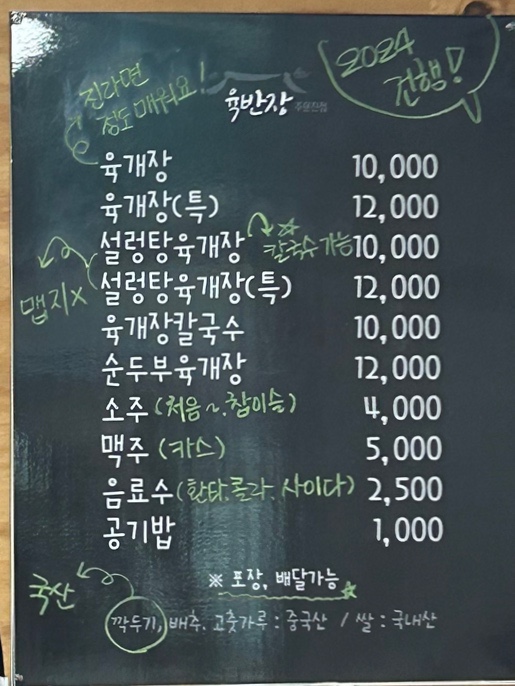 2024
건행!
진라면
정도 매워요!
육반장 주문진점
육개장 10,000
육개장(특) 12,000
설렁탕육개장 칼국수 가능 10,000
맵지X 설렁탕육개장(특) 12,000
육개장칼국수 10,000
순두부육개장 12,000
소주 (처음~, 참이슬) 4,000
맥주 (카스) 5,000
음료수 (환타.콜라.사이다) 2,500
공기밥 1,000
※ 포장, 배달가능
국산
깍두기, 배추. 고춧가루 : 중국산 / 쌀 : 국내산